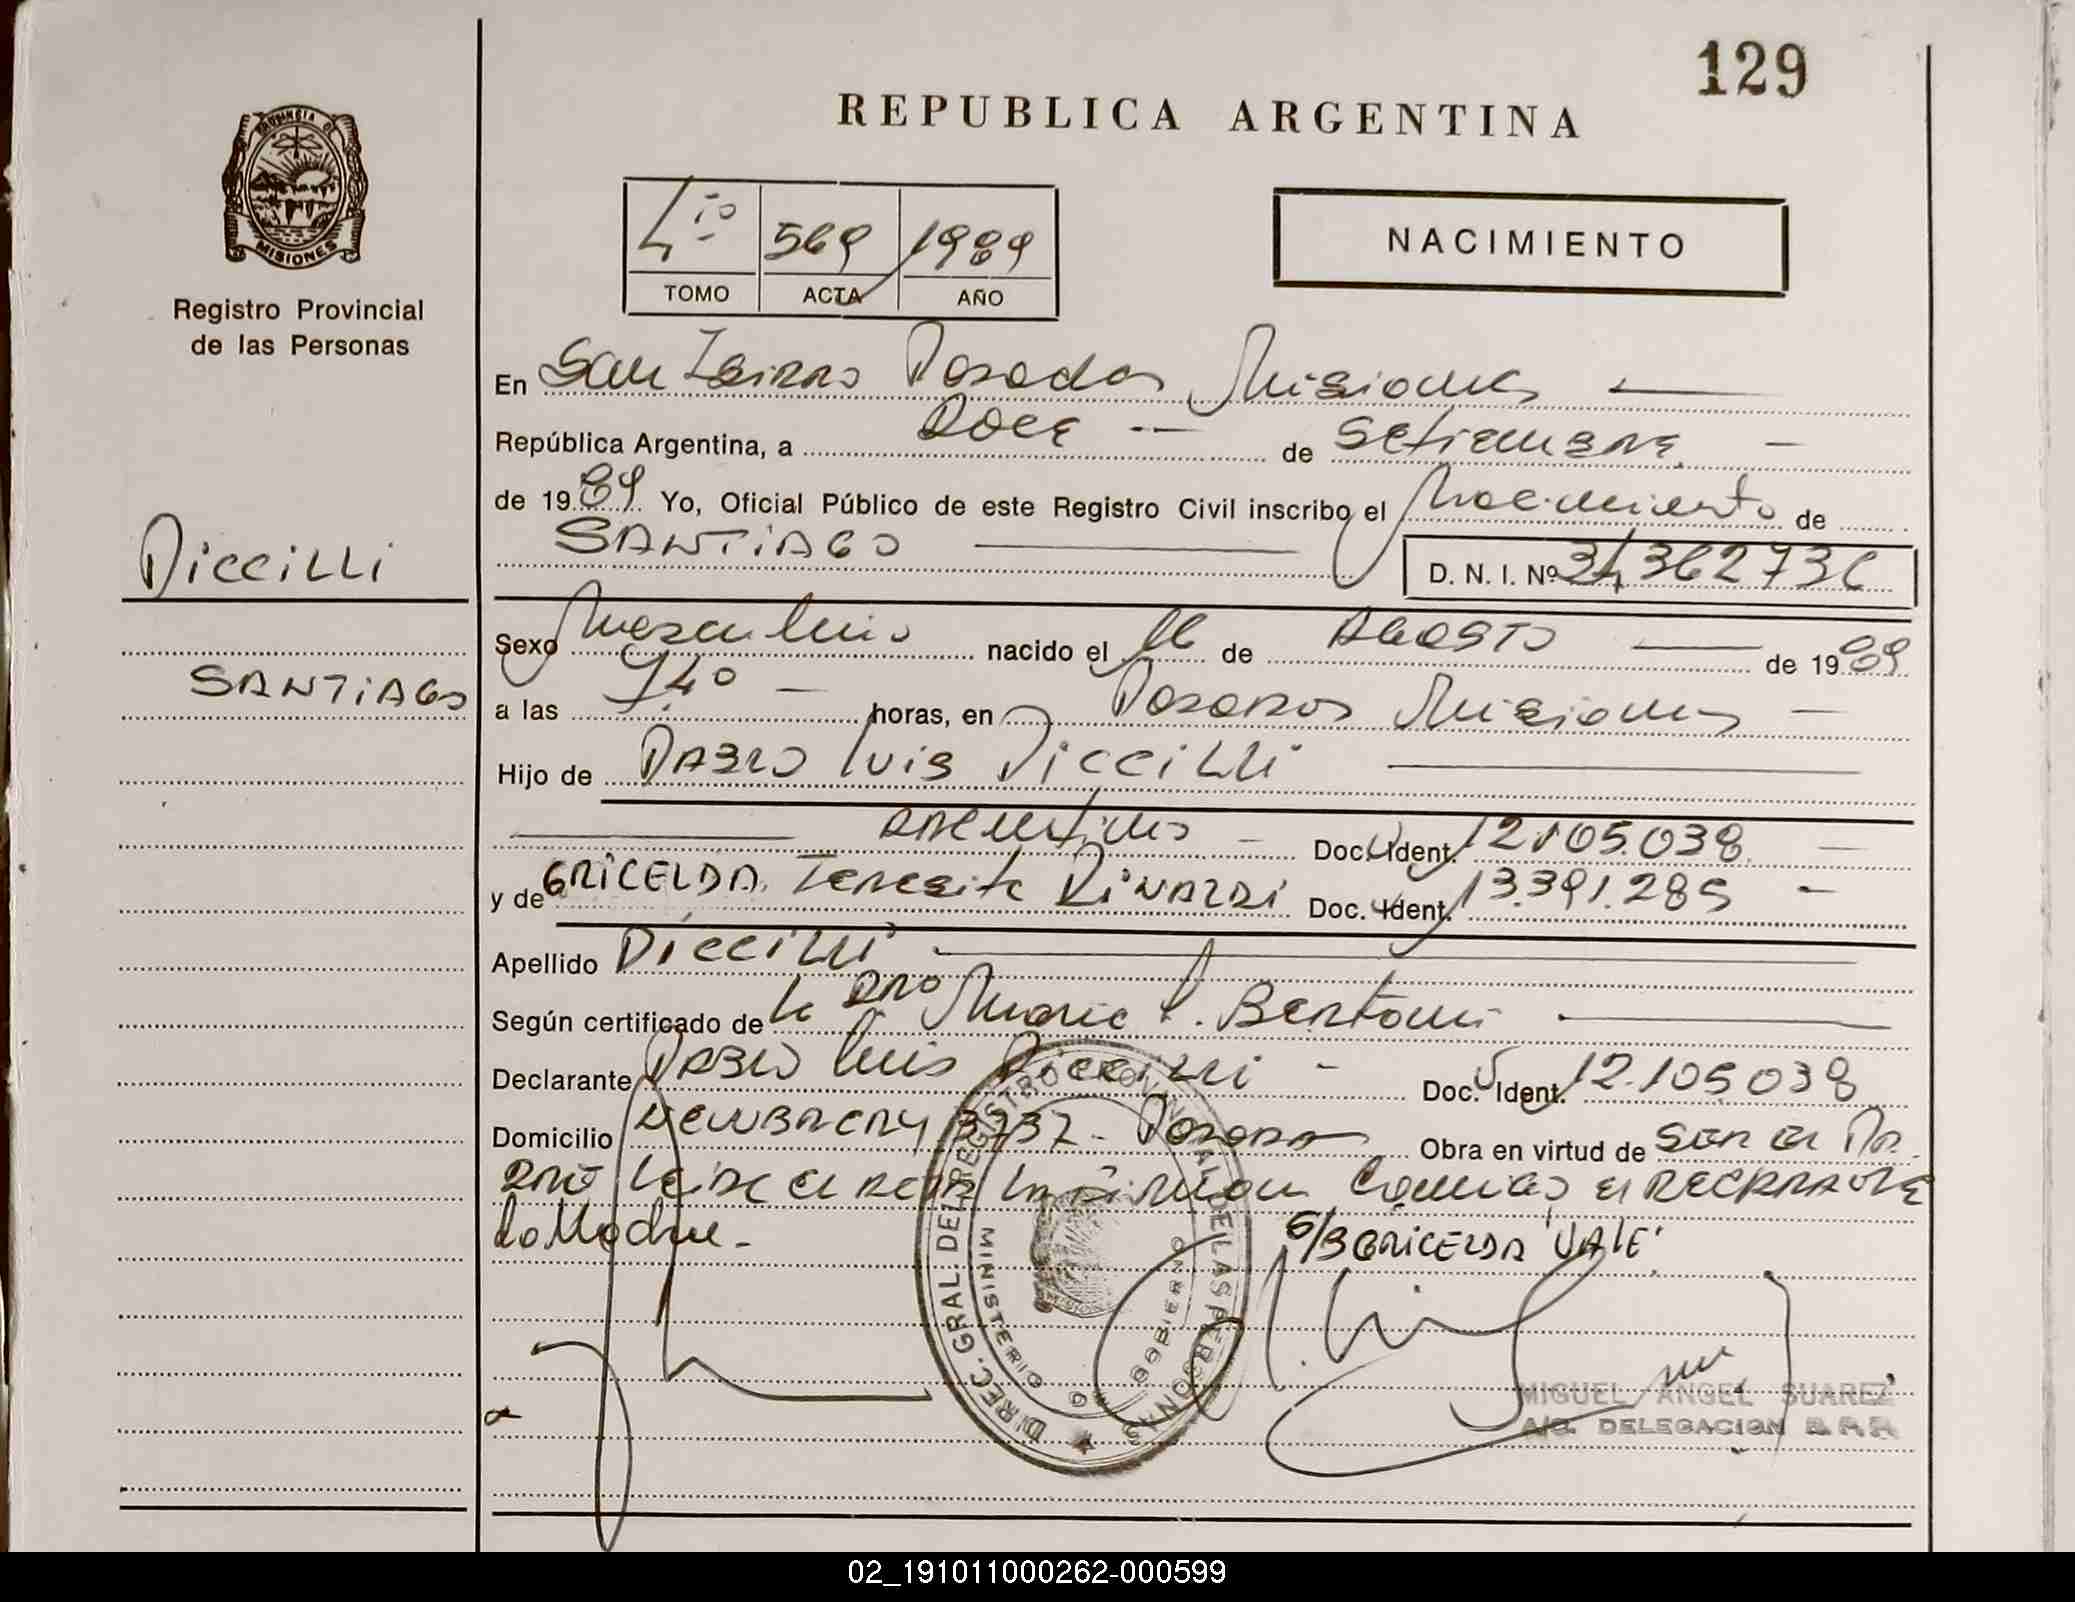 129
REPUBLICA ARGENTINA
PROVINCIA DE
MISIONES
Registro Provincial
de las Personas
4to 569 1989
TOMO ACTA AÑO
NACIMIENTO
En San Isidro Posadas Misiones
República Argentina, a Doce de Setiembre
de 1989 Yo, Oficial Público de este Registro Civil inscribo el Nacimiento de
SANTIAGO D. N. I. Nº 34362736
Piccilli
SANTIAGO
Sexo Masculino nacido el 16 de AGOSTO de 1989
a las 9,40 horas, en Posadas Misiones
Hijo de PABLO Luis Piccilli
ARGENTINO Doc. Ident. 12.105.038
y de GRICELDA Teresita RINALDI Doc. Ident. 13.391.285
Apellido Piccilli
Según certificado de la DRA María Bertoni
Declarante PABLO Luis Piccilli Doc. Ident. 12.105.038
Domicilio NEWBERY 3737 - Posadas Obra en virtud de SER EL PA
DRE Leída el acta la firman conmigo el DECLARANTE
la Madre -
S/B GRICELDA 'VALE'
DIREC. GRAL DEL REGISTRO PROVINCIAL DE LAS PERSONAS
MINISTERIO DE GOBIERNO
MIGUEL ANGEL SUAREZ
A/C. DELEGACION R.P.P.
02_191011000262-000599